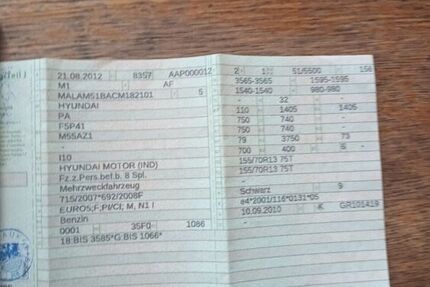 21.08.2012 8357 AAP000012
M1 AF
MALAM51BACM182101 5
HYUNDAI
PA
F5P41
M55AZ1
-
I10
HYUNDAI MOTOR (IND)
Fz.z.Pers.bef.b. 8 Spl.
Mehrzweckfahrzeug
715/2007*692/2008F
EURO5;F;PI/CI; M, N1 I
Benzin
0001 35F0 1086
18:BIS 3585*G:BIS 1066*
2 1 51/5500 156
3565-3565 1595-1595
1540-1540 980-980
- 32 -
110 1405 1405
750 740 -
750 740 -
79 3750 73
700 400 5 -
155/70R13 75T
155/70R13 75T
-
Schwarz 9
e4*2001/116*0131*05
10.09.2010 K GR101419
-